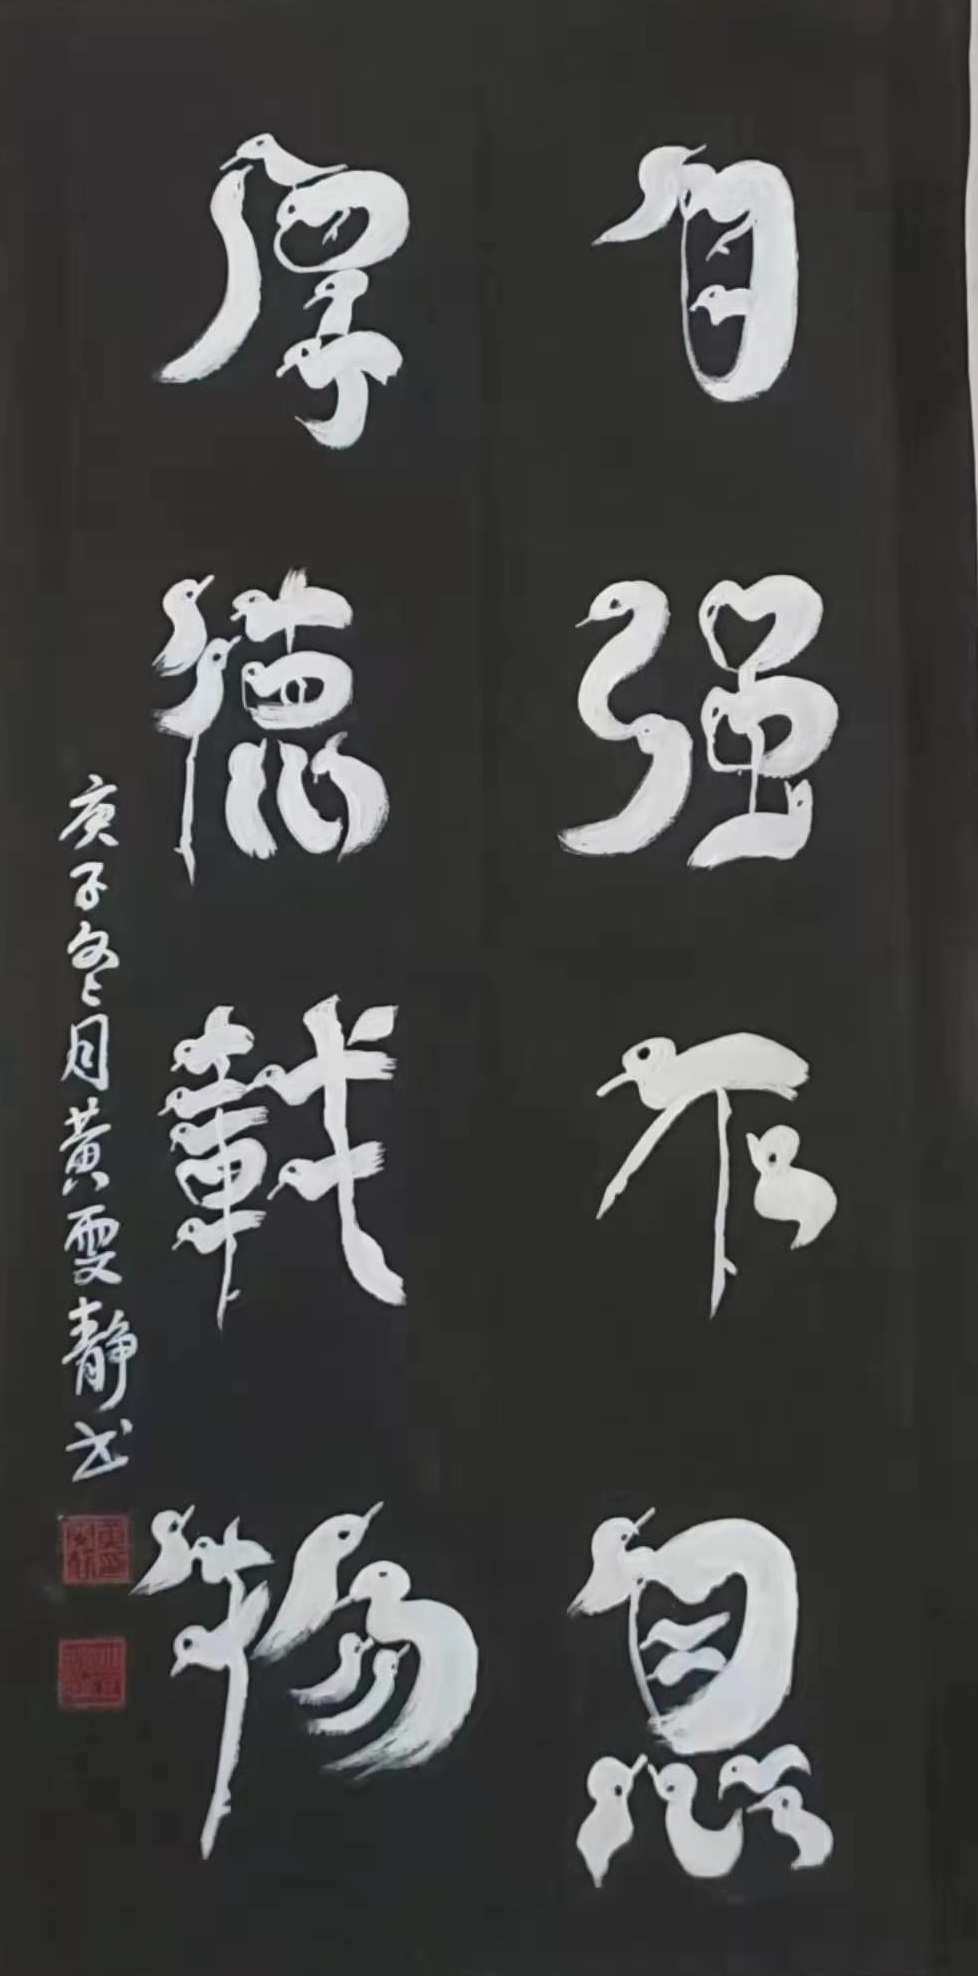 自强不息
厚德载物
庚子冬月黄雯静书